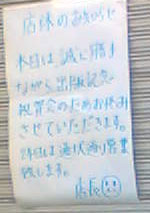 店休のお知らせ
本日は、誠に勝手
ながら出版記念
祝賀会のためお休み
させていただきます。
24日は通常通り営業
致します。
店長